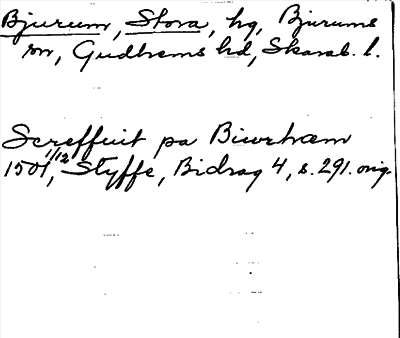 Bjurum, Stora, hg, Bjurums
sn, Gudhems hd, Skarab. l.
Screffuit pa Biwrhæm
1501 1/12, Styffe, Bidrag 4, s. 291. orig.